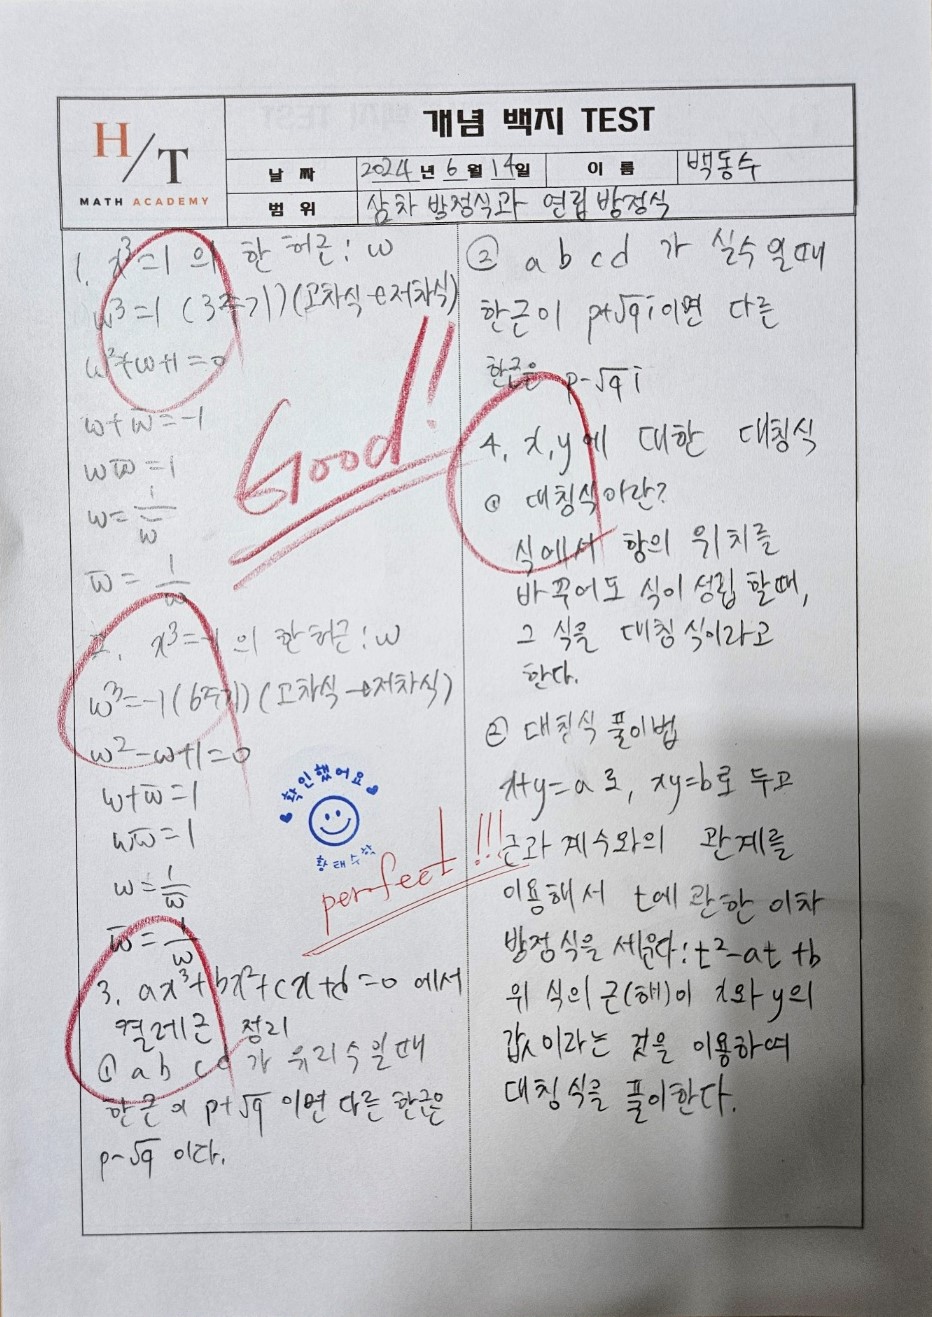 H/T
MATH ACADEMY
개념 백지 TEST
날 짜 2024년 6월 14일 이 름 백동수
범 위 삼차 방정식과 연립방정식
1. x³=1 의 한 허근: w
w³=1 (3주기)(고차식→저차식)
w²+w+1=0
w+w̅=-1
ww̅=1
w=1/w̅
w̅=1/w
2. x³=-1 의 한 허근: w
w³=-1 (6주기)(고차식→저차식)
w²-w+1=0
w+w̅=1
ww̅=1
w=1/w̅
w̅=1/w
3. ax³+bx²+cx+d=0 에서
켤레근 정리
① a b c d 가 유리수일때
한근이 p+√q 이면 다른 한근은
p-√q 이다.
Good!!
확인했어요
황태수학
perfect!!!
② a b c d 가 실수일때
한근이 p+√q i 이면 다른
한근은 p-√q i
4. x,y에 대한 대칭식
① 대칭식이란?
식에서 항의 위치를
바꾸어도 식이 성립할때,
그 식을 대칭식이라고
한다.
② 대칭식 풀이법
x+y=a로, xy=b로 두고
근과 계수와의 관계를
이용해서 t에 관한 이차
방정식을 세운다: t²-at+b
위 식의 근(해)이 x와 y의
값이라는 것을 이용하여
대칭식을 풀이한다.